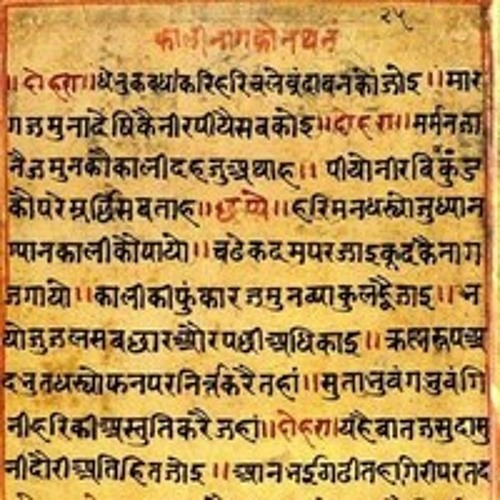 २५
कालीनागकोनथनं
॥दोहरा॥धेनुकबधकरिहरिचलेबृंदाबनकोजोइ॥मार
गजमुनादेषिकैनीरपीयैसबकोइ॥दोहरा॥मर्मनजा
नैजमुनकौकालीदहजुअथाह॥ पीयोनीरबिकुंज
कौपरेमुर्छिसबताह॥छप्पै॥हरिमनधस्योजुध्यान
ग्यानकालीकौपायो॥चढेकदमपरजाइकूदकैनाग
जगायो॥कालीकीफुंकारजमुनब्याकुलह्वैजाइ॥भ
योजुजलसबछारऔरपछीअधिकाइ॥कृस्नरूपअ
दनुतधस्योफनपरनिर्त्तकरैतहां॥सुतानुवंगनुवंगि
नीहरिकीअस्तुतिकरैजहां॥दोहरा॥यहैबातजसुदासु
नीदौरीअतिहितजोइ॥आननईगढीतहगिरीपरतद